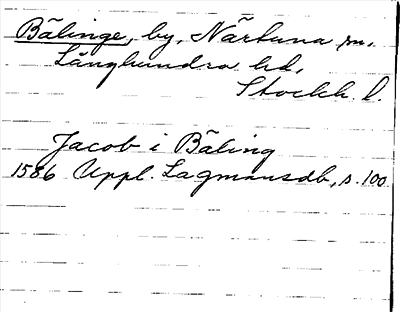 Bälinge, by, Närtuna sn.
Långhundra hd,
Stockh. l.
Jacob i Bäling
1586 Uppl. Lagmansdb, s. 100